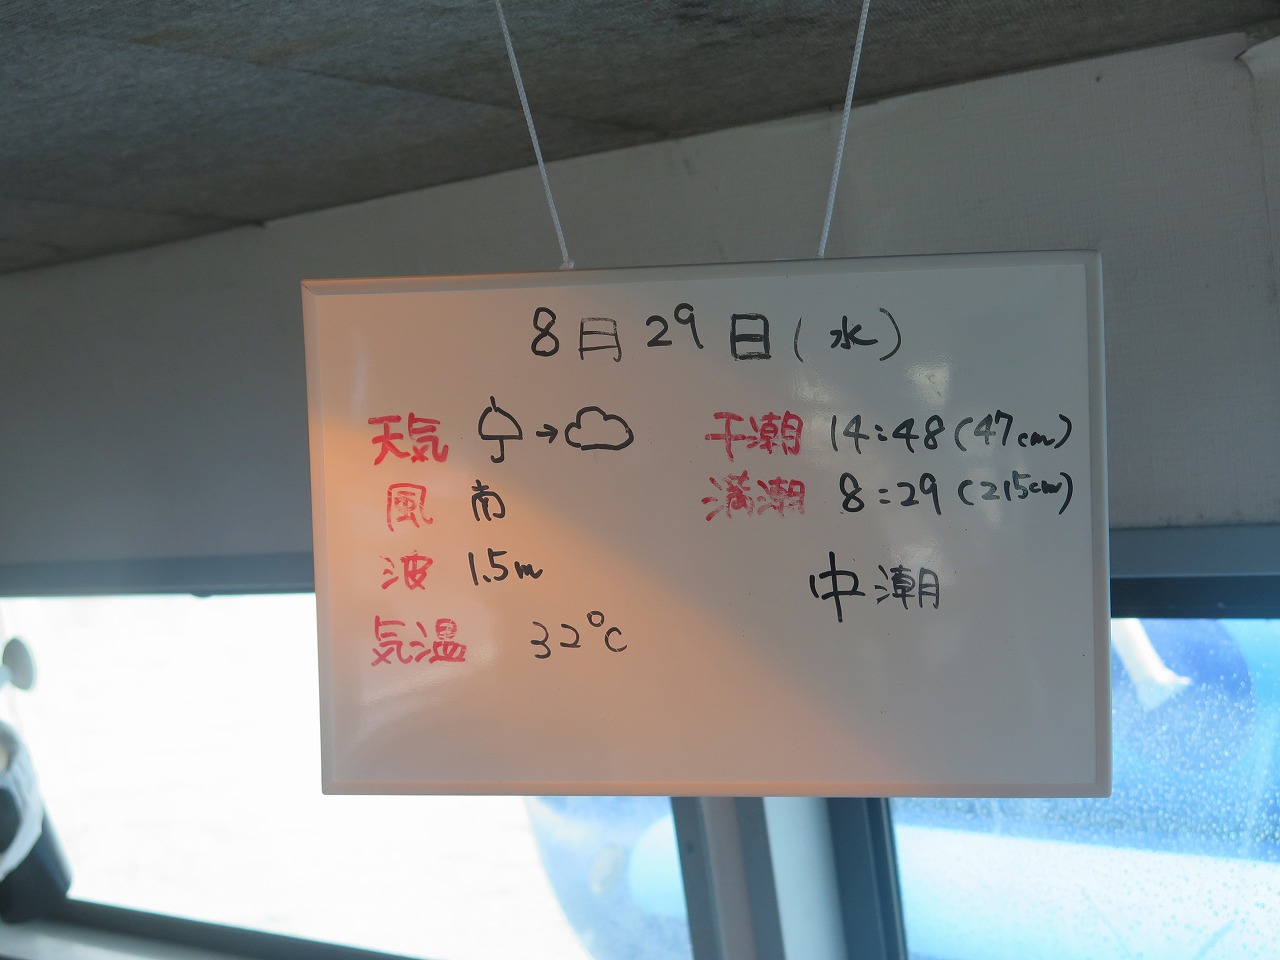 8月29日(水)
天気 → 干潮 14:48(47cm)
風 南 満潮 8:29(215cm)
波 1.5m
中潮
気温 32℃